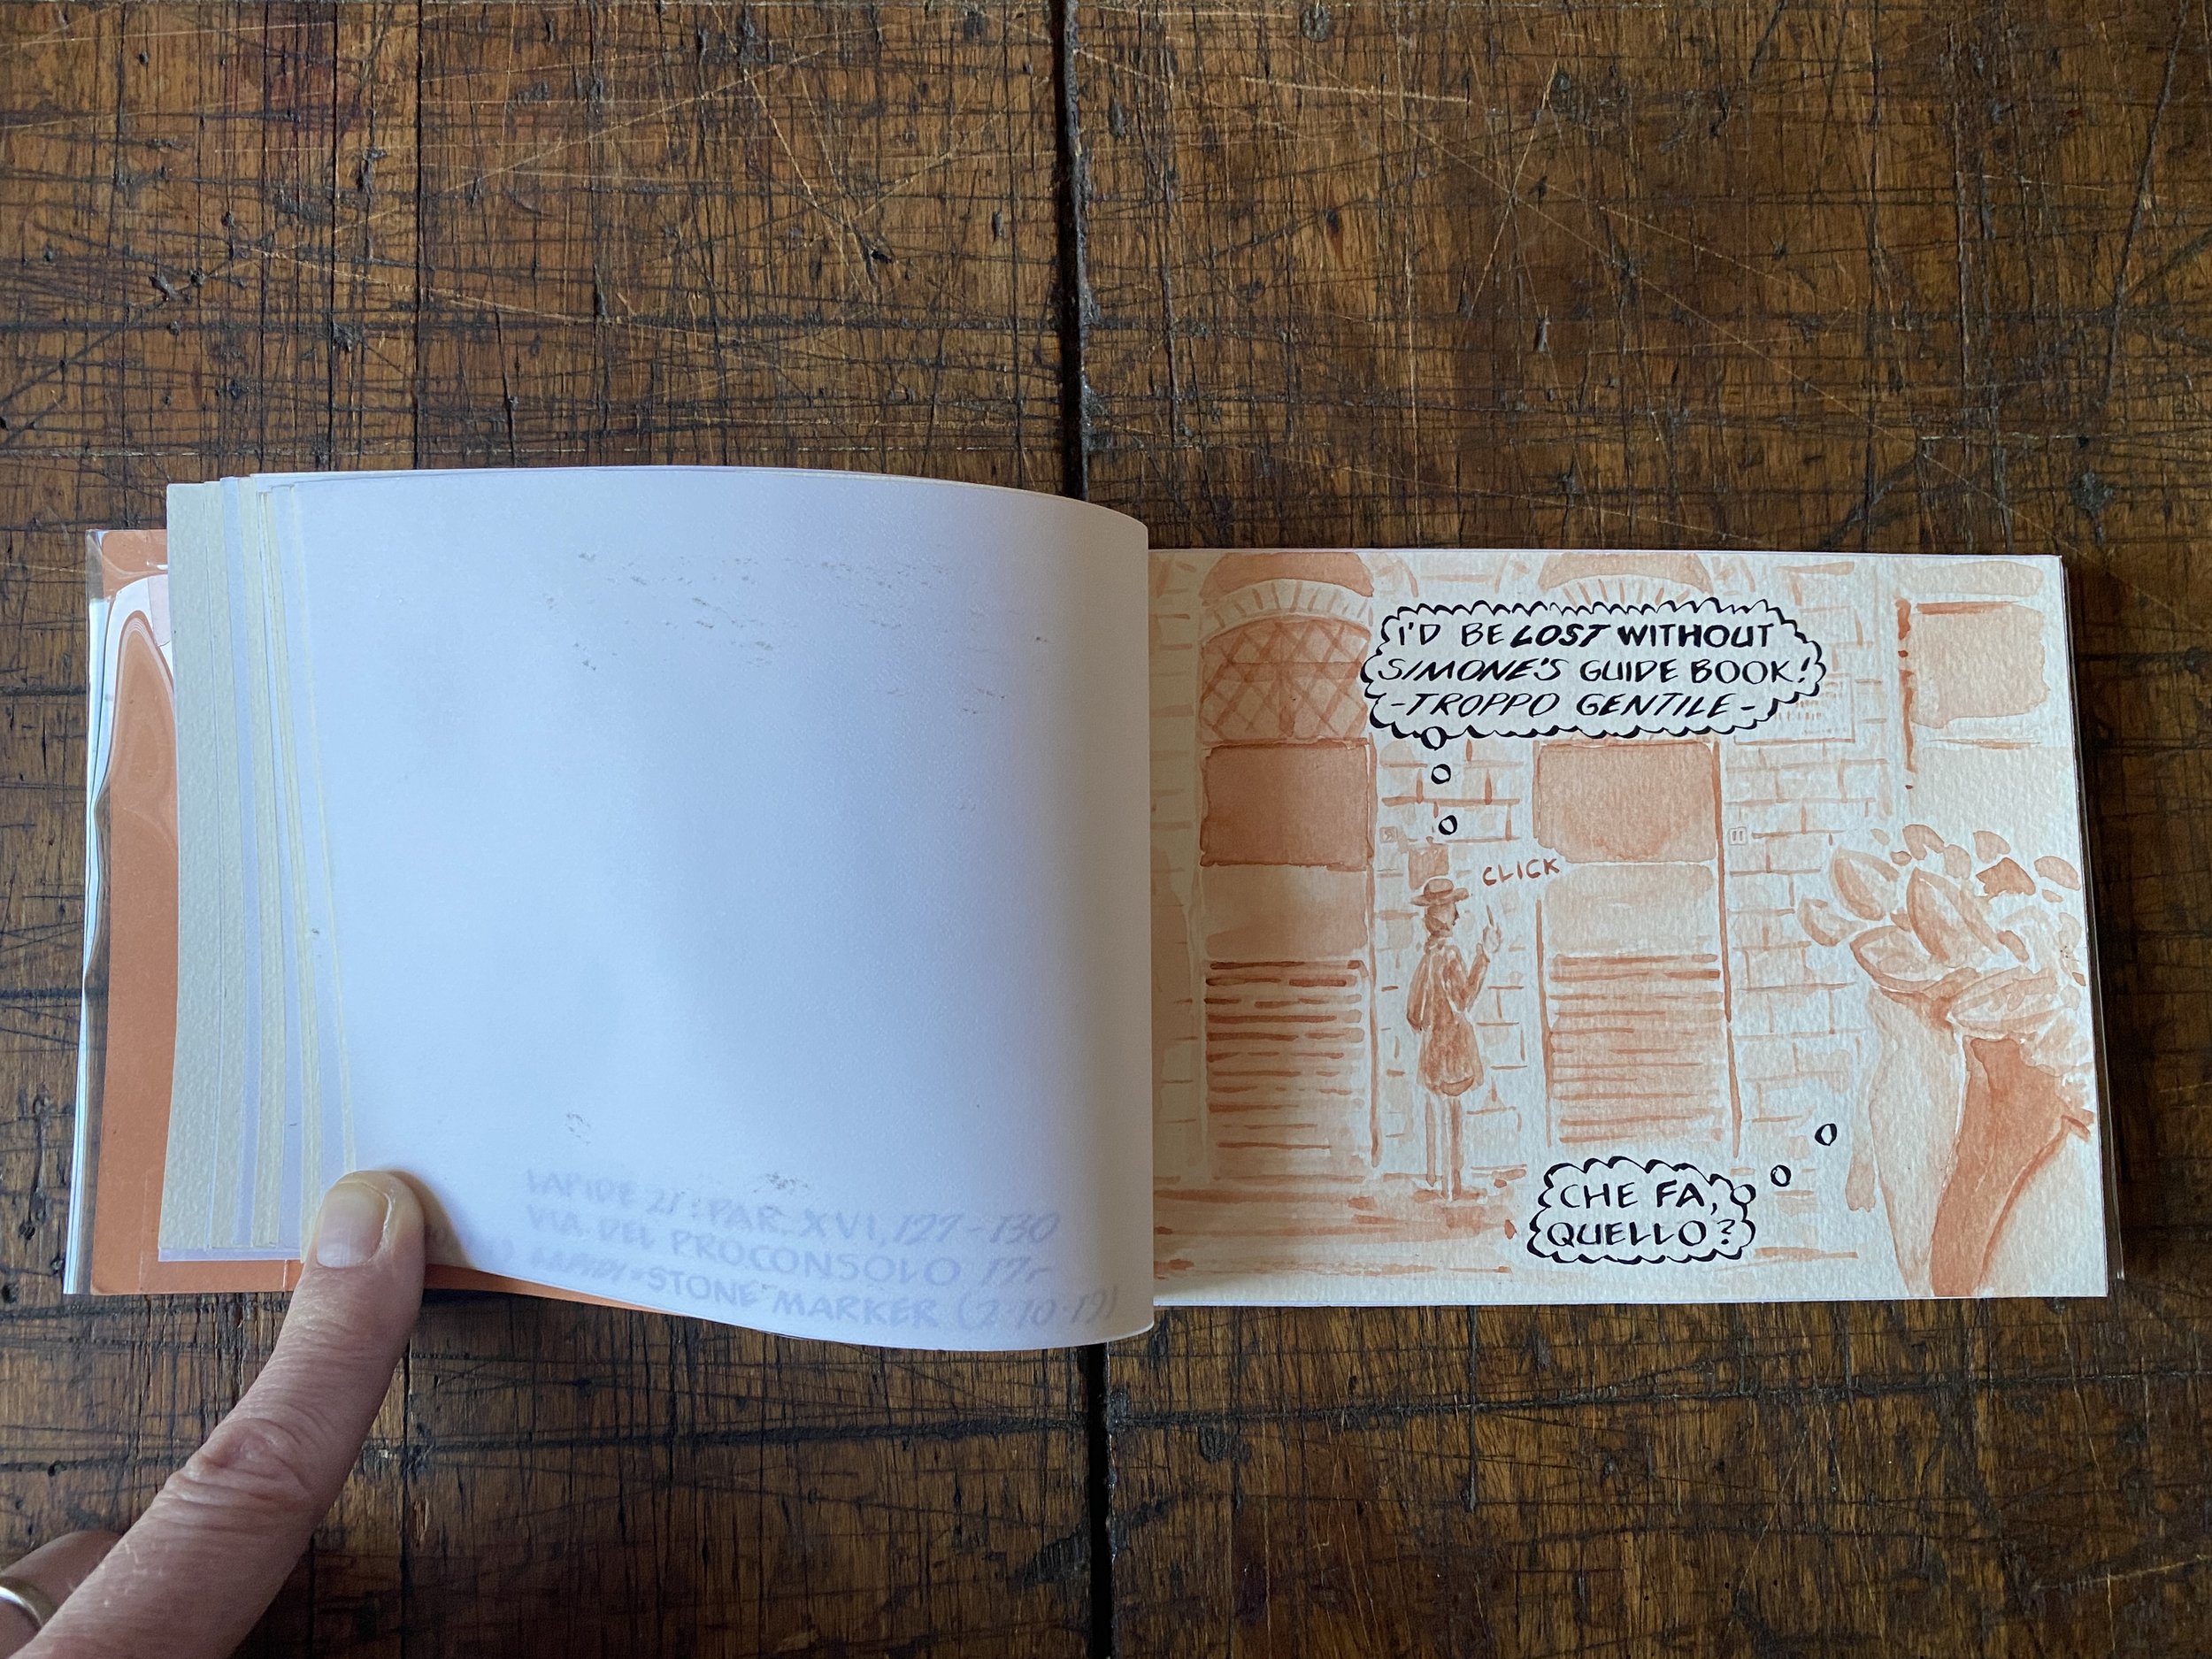 LAPIDE 21: PAR. XVI, 127-130
VIA DEL PROCONSOLO 17r
LAPIDI=STONE MARKER (2·10·19)
I'D BE LOST WITHOUT
SIMONE'S GUIDE BOOK!
-TROPPO GENTILE-
CLICK
CHE FA,
QUELLO?